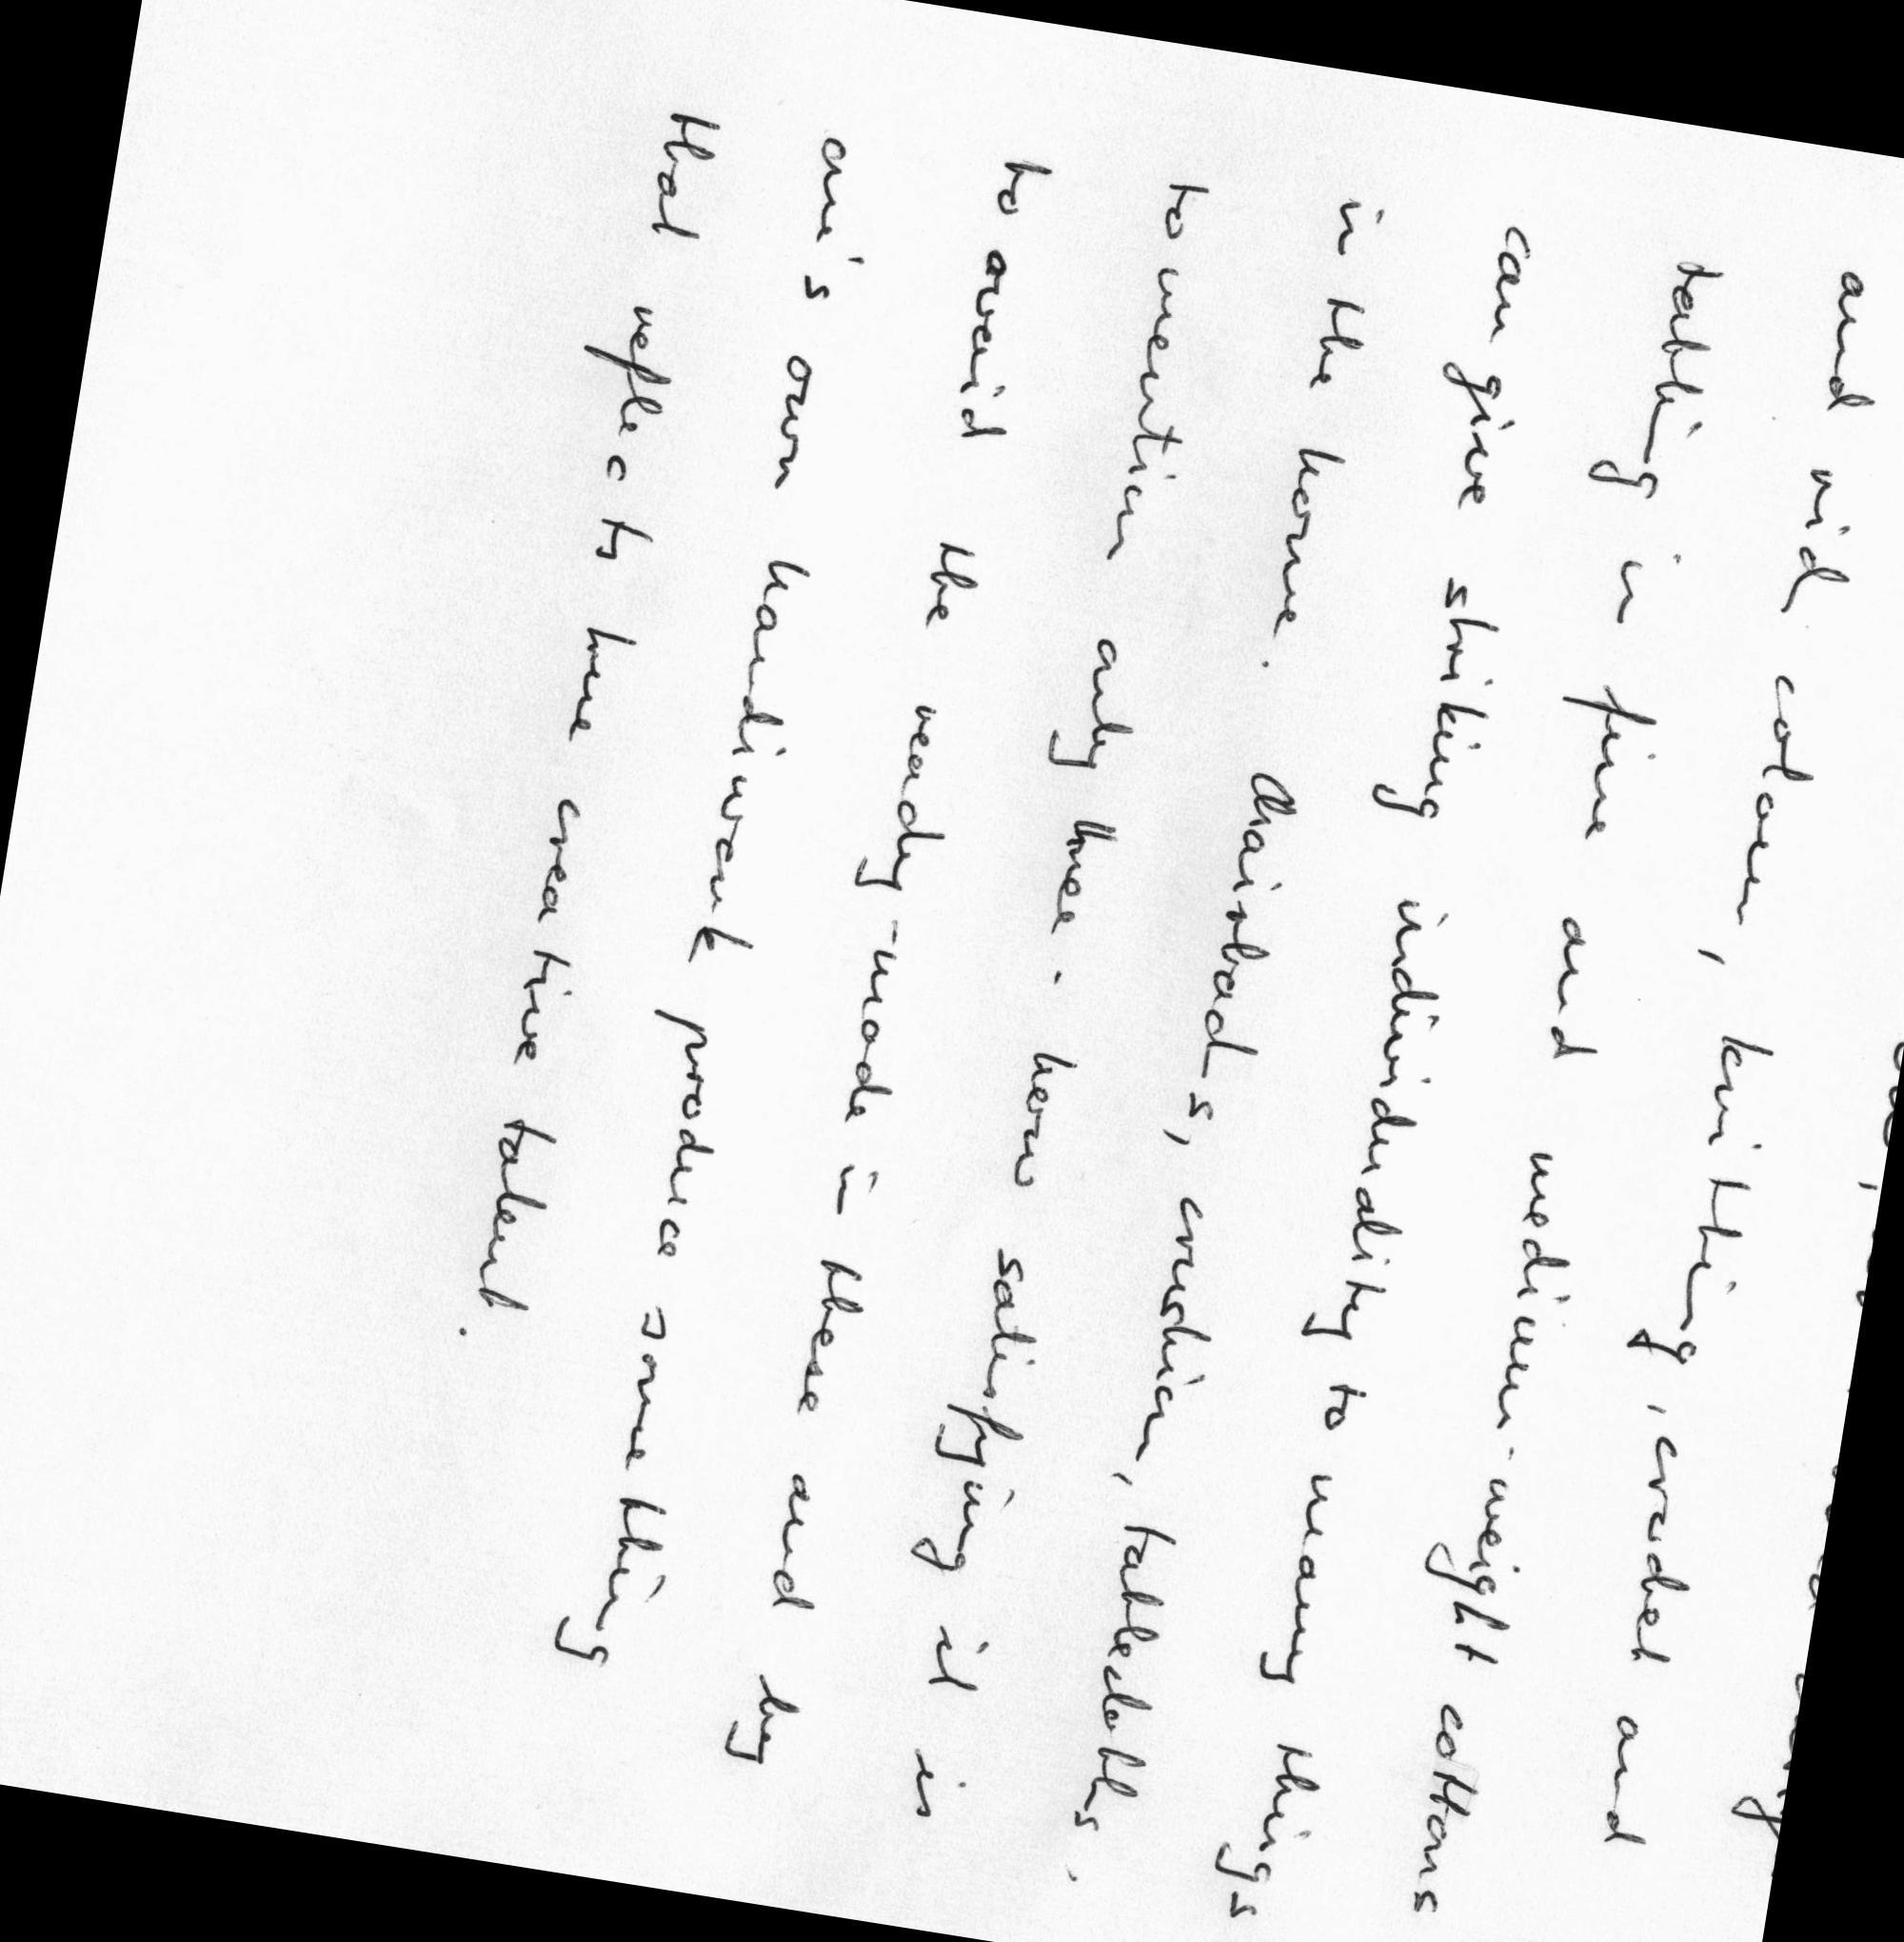 and rich colour, knitting, crochet and
tatting in fine and medium-weight cottons
can give striking individuality to many things
in the home. Chairbacks, cushion, tablecloths,
to mention only three - how satisfying it is
to avoid the ready-made in these and by
one's own handiwork produce something
that reflects true creative talent.